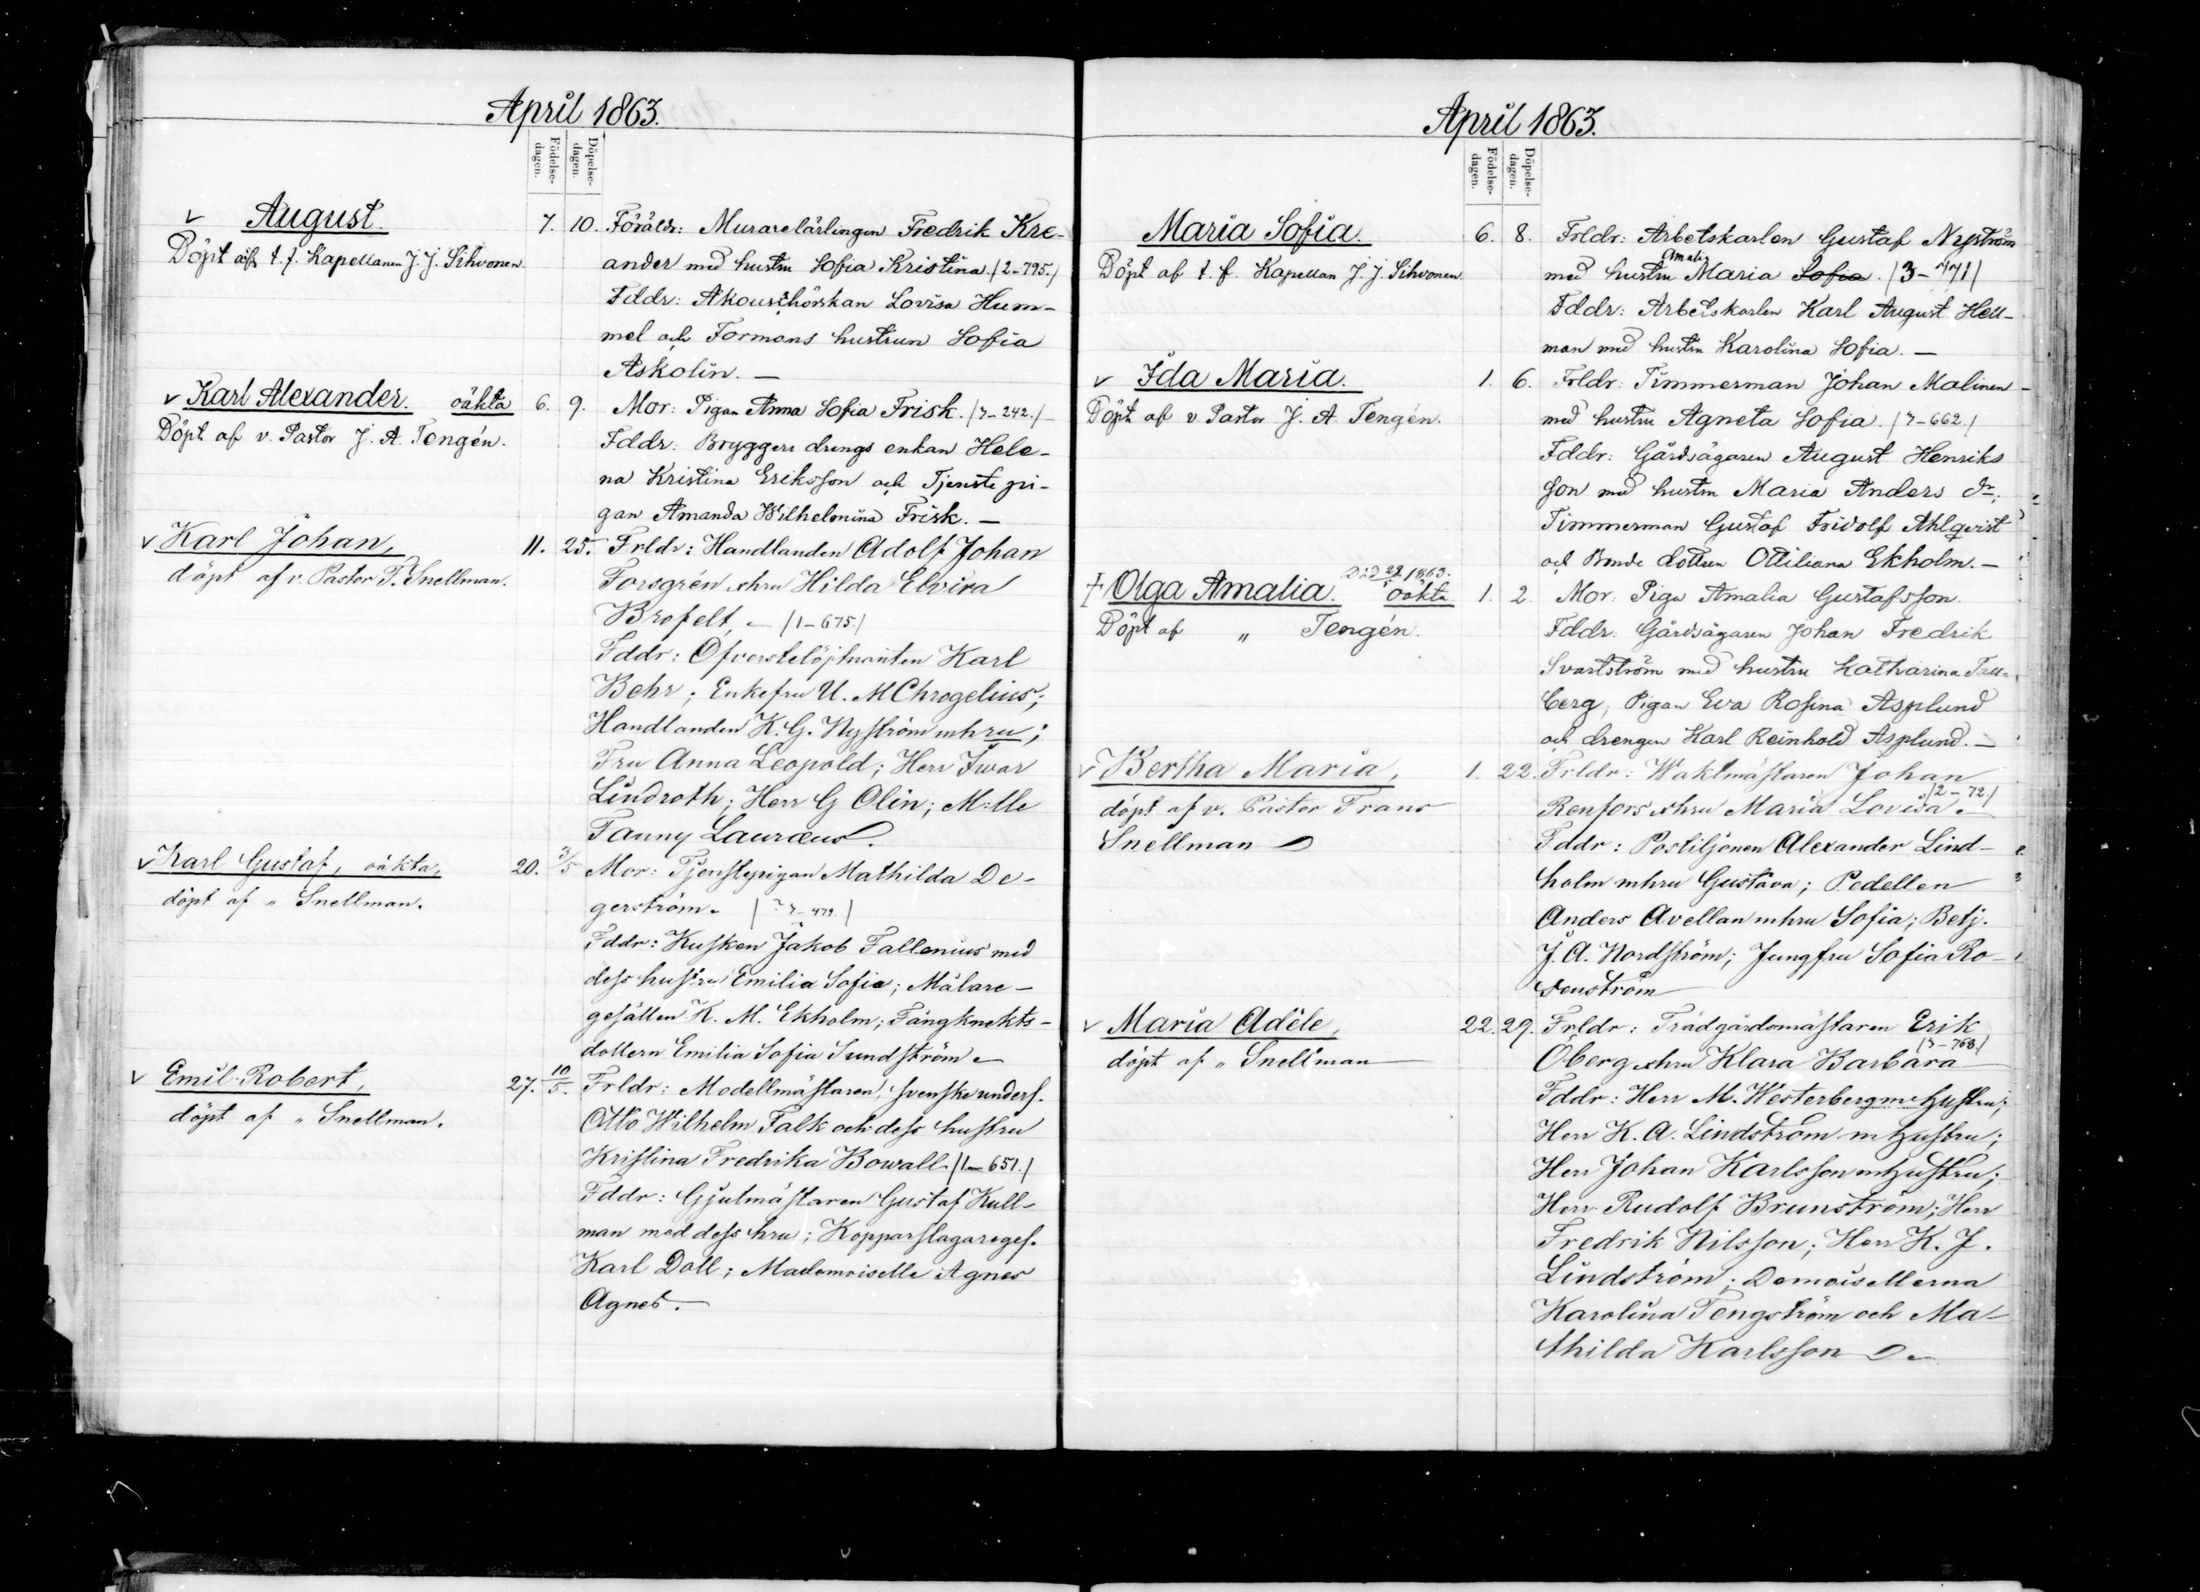 April 1863.
Födelse-dagen. Döpelse-dagen.
August. 7. 10. Föräldr: Murarelärlingen Fredrik Kre-
Döpt af t. f. Kapellanen J. J. Sihvonen.
ander med hustru Sofia Kristina. (2-795.)
Fddr: Akouchörskan Lovisa Hum-
mel och Formans hustrun Sofia
Askolin. —
Karl Alexander. oäkta 6. 9. Mor: Pigan Anna Sofia Frisk. (3-242.)
Döpt af v. Pastor J. A. Tengén.
Fddr: Bryggeri drengs enkan Hele-
na Kristina Eriksson och Tjenste pi-
gan Amanda Wilhelmina Frisk. —
Karl Johan, 11. 25. Frldr: Handlanden Adolf Johan
döpt af v. Pastor F. Snellman.
Forsgrén o. hru Hilda Elvira
Brofelt, (1-675.)
Fddr: Öfverstelöjtnanten Karl
Behr; Enkefru U. M Chrogelius;
Handlanden K. G. Nyström m hru;
Fru Anna Leopold; Herr Iwar
Lindroth; Herr G Olin; M:lle
Fanny Lauræus.
Karl Gustaf, oäkta, 20. 3/5 Mor: Tjenstepigan Mathilda De-
döpt af „ Snellman.
gerström. (3-479.)
Fddr: Kusken Jakob Fallenius med
dess hustru Emilia Sofia; Målare-
gesällen K. M. Ekholm; Fångknekts-
dottern Emilia Sofia Sundström
Emil Robert, 27. 10/5. Frldr: Modellmästaren, svenske unders.
döpt af „ Snellman.
Otto Wilhelm Falk och dess hustru
Kristina Fredrika Bowall (1-651.)
Fddr: Gjutmästaren Gustaf Kull-
man med dess hru; Kopparslagareges.
Karl Doll; Mademoiselle Agnes
Agnes.
April 1863.
Födelse-dagen. Döpelse-dagen.
Maria Sofia. 6. 8. Frldr: Arbetskarlen Gustaf Nyström
Döpt af t. f. Kapellan J. J. Sihvonen
med hustru Maria Amalia Sofia. (3-771)
Fddr: Arbetskarlen Karl August Hell-
man med hustru Karolina Sofia. —
Ida Maria. 1. 6. Frldr: Timmerman Johan Malinen
Döpt af v. Pastor J. A. Tengén.
med hustru Agneta Sofia. (3-662.)
Fddr: Gårdsägaren August Henriks
son med hustru Maria Anders dr;
Timmerman Gustaf Fridolf Ahlqvist
och Bonde dottren Ottiliana Ekholm. —
Död 29/5 1863.
Olga Amalia. oäkta 1. 2. Mor: Piga Amalia Gustafsson.
Döpt af „ Tengén.
Fddr: Gårdsägaren Johan Fredrik
Svartström med hustru Katharina Tall-
berg; Pigan Eva Rosina Asplund
och drengen Karl Reinhold Asplund. —
Bertha Maria, 1. 22. Frldr: Waktmästaren Johan
döpt af v. Pastor Frans
Snellman
Renfors o. hru Maria Lovisa (2-72)
Fddr: Postiljonen Alexander Lind-
holm m hru Gustava; Pedellen
Anders Avellan m hru Sofia; Betj.
J. A. Nordström; Jungfru Sofia Ro-
senström
Maria Adèle, 22. 29. Frldr: Trädgårdsmästaren Erik
döpt af „ Snellman
Öberg o. hru Klara Barbara (3-768.)
Fddr: Herr M. Westerberg m hustru;
Herr K. A. Lindström m hustru;
Herr Johan Karlsson m hustru;
Herr Rudolf Brunström; Herr
Fredrik Nilsson; Herr K. J.
Lindström; Demoisellerna
Karolina Tengström och Ma-
thilda Karlsson